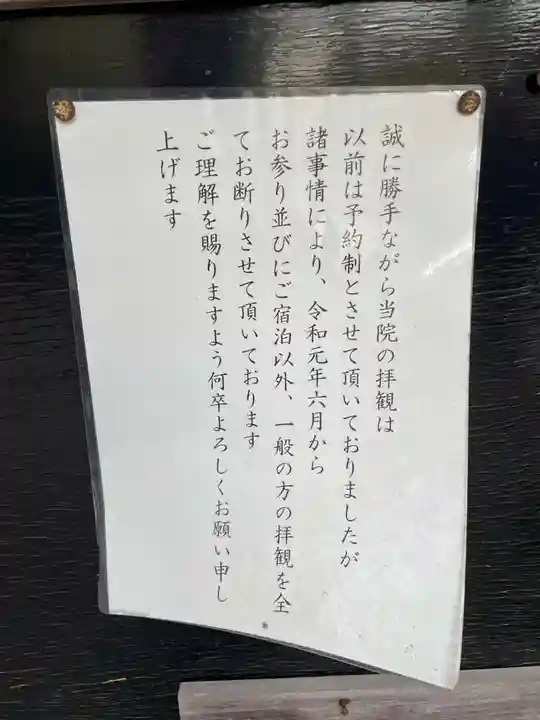 誠に勝手ながら当院の拝観は
以前は予約制とさせて頂いておりましたが
諸事情により、令和元年六月から
お参り並びにご宿泊以外、一般の方の拝観を全
てお断りさせて頂いております
ご理解を賜りますよう何卒よろしくお願い申し
上げます